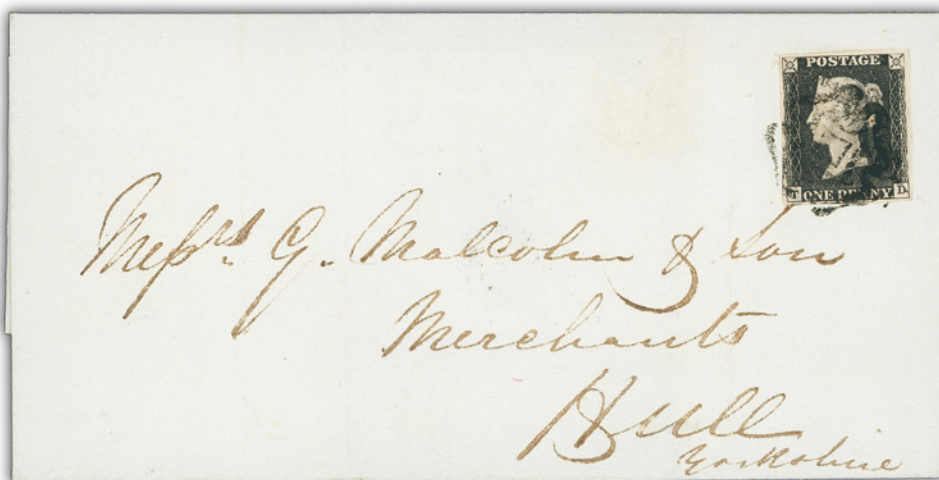 POSTAGE
T ONE PENNY D
Messrs. G. Malcolm & Son
Merchants
Hull
Yorkshire